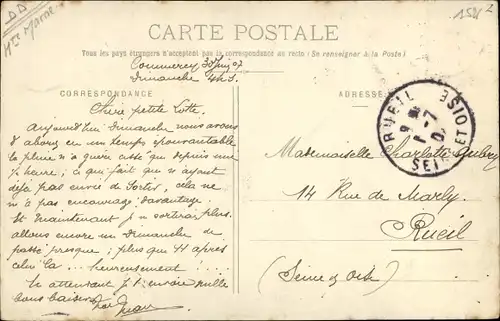 DD
Hte Marne
1581 2
CARTE POSTALE
Tous les pays étrangers n'acceptent pas la correspondance au recto (Se renseigner à la Poste)
Commercy 30 Juin 07
Dimanche 4h s.
CORRESPONDANCE
ADRESSE
RUEIL
SEINE ET OISE
Chère petite Lotte.
Aujourd'hui Dimanche nous avons
d'abord eu un temps épouvantable
la pluie n'a guère cessé que depuis une
½ heure; ce qui fait que n'ayant
déjà pas envie de sortir, cela ne
m'a pas encouragé davantage.
Et maintenant je n' sortirai plus.
Allons encore un Dimanche de
passé presque; plus que 11 après
celui là ... heureusement! ...
En attendant je t'envoie mille
bons baisers
Mademoiselle Charlotte Aubry
14 Rue de Marly
Rueil
(Seine & Oise)